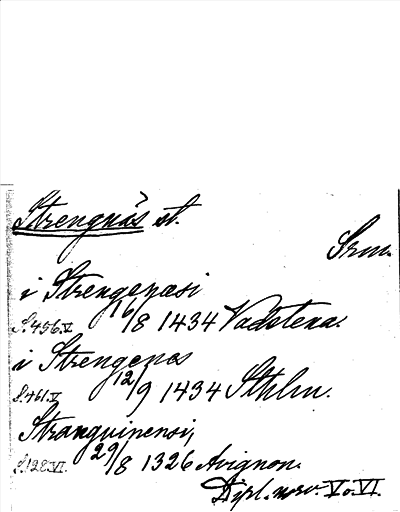 Strengnäs st.
Srm.
i Strengenæsi
S. 456. V 16/8 1434 Vadstena.
i Strengenes
S. 461. V 12/9 1434 Sthlm.
Strangvinensi,
S. 128. VI. 29/8 1326 Avignon.
Dipl. norv. V o. VI.